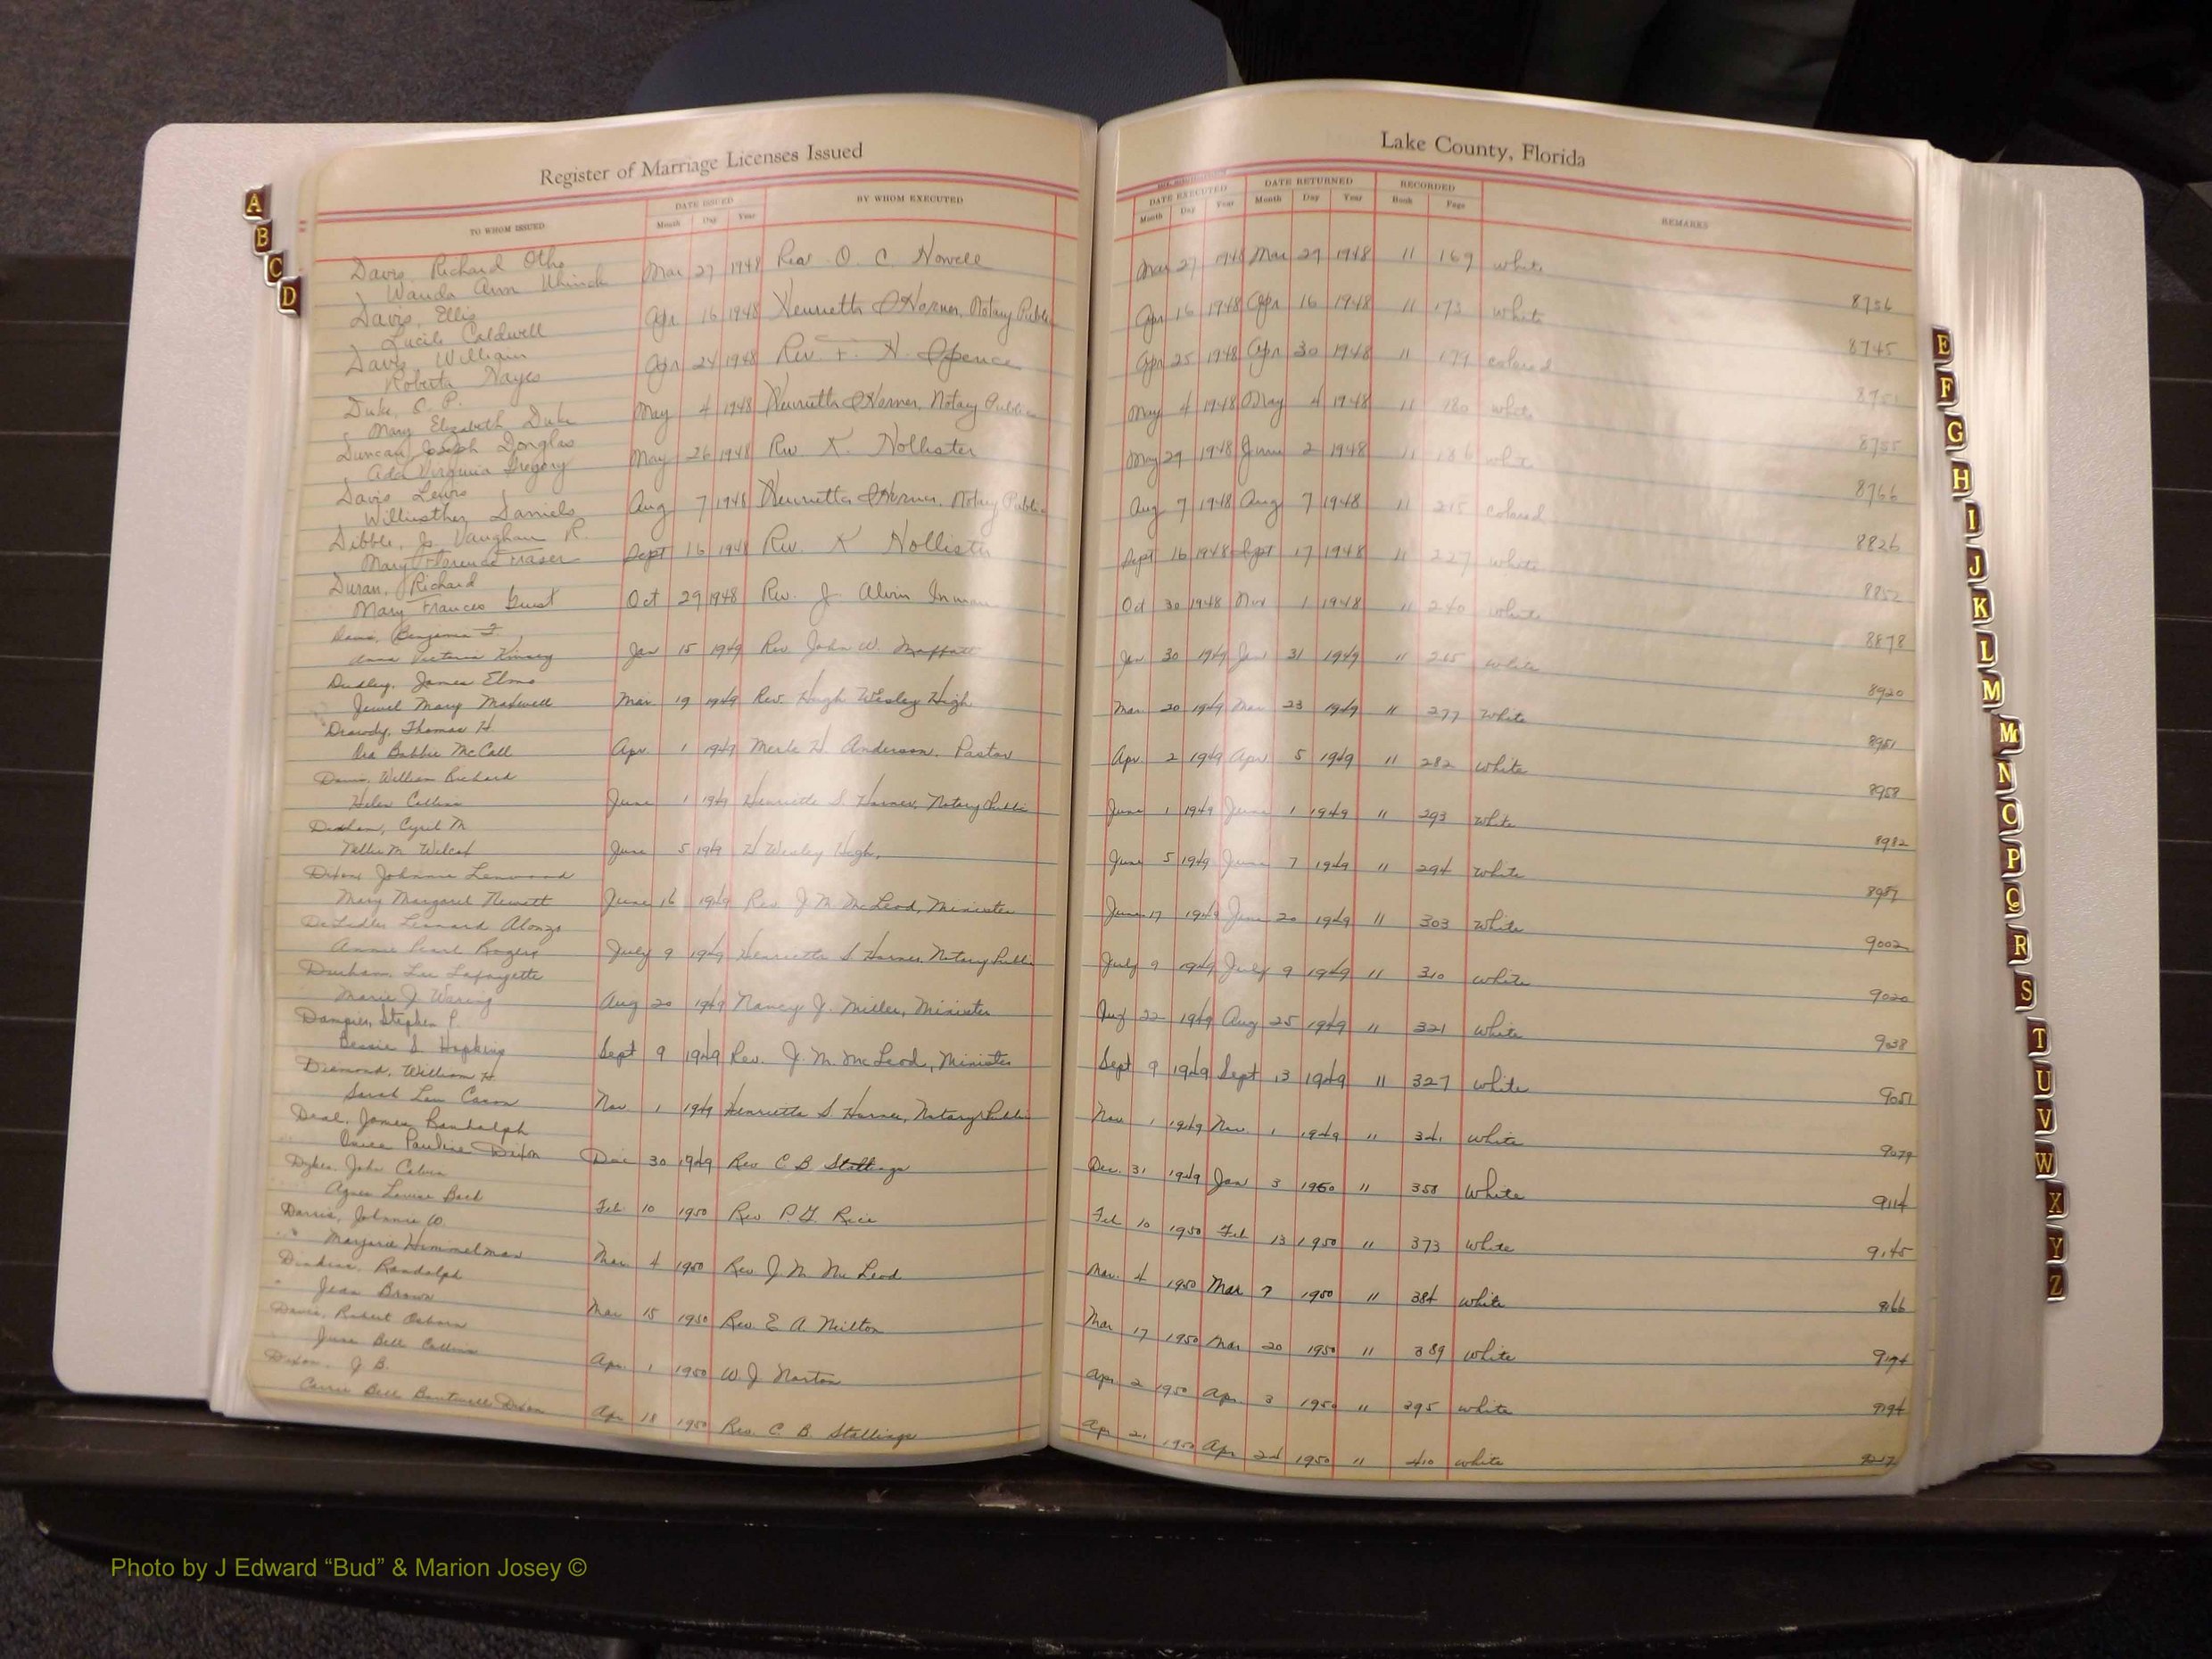 Register of Marriage Licenses Issued
Lake County, Florida
TO WHOM ISSUED DATE ISSUED BY WHOM EXECUTED DATE EXECUTED DATE RETURNED RECORDED REMARKS
Month Day Year Month Day Year Month Day Year Book Page
Davis, Richard Otho
Wanda Ann Mar 27 1948 Rev. O. C. Howell Mar 27 1948 Mar 29 1948 11 169 white 8736
Davis, Ellis
Lucile Caldwell Apr 16 1948 Henrietta S Horner, Notary Public Apr 16 1948 Apr 16 1948 11 173 white 8745
Davis William
Roberta Hayes Apr 24 1948 Rev F. H. Spence Apr 25 1948 Apr 30 1948 11 179 colored
Duke,
Mary Elizabeth Duke May 4 1948 Henrietta S Horner, Notary Public May 4 1948 May 4 1948 11 180 white 8755
Duncan, Joseph Douglas
Ada Virginia Gregory May 26 1948 Rev K. Hollister May 29 1948 June 2 1948 11 186 white 8766
Davis Lewis
Williesther Daniels Aug 7 1948 Henrietta S Horner, Notary Public Aug 7 1948 Aug 7 1948 11 215 colored 8826
Dibble, Jr. Vaughan R.
Mary Florence Fraser Sept 16 1948 Rev. K Hollister Sept 16 1948 Sept 17 1948 11 227 white 8852
Duran, Richard
Mary Frances Guest Oct 29 1948 Rev. J. Alvin Inman Oct 30 1948 Nov 1 1948 11 240 white 8878
Davis, Benjamin F.
Anna Victoria Kinsey Jan 15 1949 Rev John W. Moffatt Jan 30 1949 Jan 31 1949 11 265 white 8920
Dudley, James Elmo
Jewel Mary Maxwell Mar 19 1949 Rev. Hugh Wesley High Mar 20 1949 Mar 23 1949 11 277 White 8951
Drawdy, Thomas H.
Bobbie McCall Apr. 1 1949 Merle H. Anderson, Pastor Apr. 2 1949 Apr 5 1949 11 282 White 8958
Davis, William Richard
Helen Collins June 1 1949 Henrietta S. Horner, Notary Public June 1 1949 June 1 1949 11 293 white 8982
Cyril M.
Nellie M. Welcot June 5 1949 H Wesley High, June 5 1949 June 7 1949 11 294 White 8987
Dixon, Johnnie Lenwood
Mary Margaret Hewett June 16 1949 Rev J M McLeod, Minister June 17 1949 June 20 1949 11 303 White 9002
Leonard Alonzo
Annie Pearl Rogers July 9 1949 Henrietta S Horner, Notary Public July 9 1949 July 9 1949 11 310 White 9020
Durham, Lee Lafayette
Marie J. Waring Aug 20 1949 Nancy J. Miller, Minister Aug 22 1949 Aug 25 1949 11 321 White 9038
Dampier, Stephen P.
Bessie S. Hopkins Sept 9 1949 Rev. J. M. McLeod, Minister Sept 9 1949 Sept 13 1949 11 327 white 9051
Diamond, William H.
Sarah Lou Cason Nov. 1 1949 Henrietta S Horner, Notary Public Nov 1 1949 Nov. 1 1949 11 341 White 9079
Deal, James Randolph
Pauline Dixon Dec 30 1949 Rev C. B. Stallings Dec. 31 1949 Jan 3 1950 11 358 White 9114
Dykes, John Calvin
Agnes Louise Feb. 10 1950 Rev P. G. Rice Feb 10 1950 Feb 13 1950 11 373 White 9145
Johnnie W.
Marjorie Himmelman Mar. 4 1950 Rev. J M McLeod Mar. 4 1950 Mar 7 1950 11 384 White 9166
Randolph
Jean Brown Mar 15 1950 Rev. E. A. Milton Mar 17 1950 Mar 20 1950 11 389 White
Davis, Robert Osborn
June Bell Collins Apr. 1 1950 W. J. Norton Apr 2 1950 Apr. 3 1950 11 395 white 9194
Dixon, J. B.
Carrie Bell Dixon Apr 18 1950 Rev. C. B. Stallings Apr 21 1950 Apr 24 1950 11 410 white
A
B
C
D
E
F
G
H
I
J
K
L
M
Mc
N
O
P
Q
R
S
T
U
V
W
X
Y
Z
Photo by J Edward “Bud” & Marion Josey ©